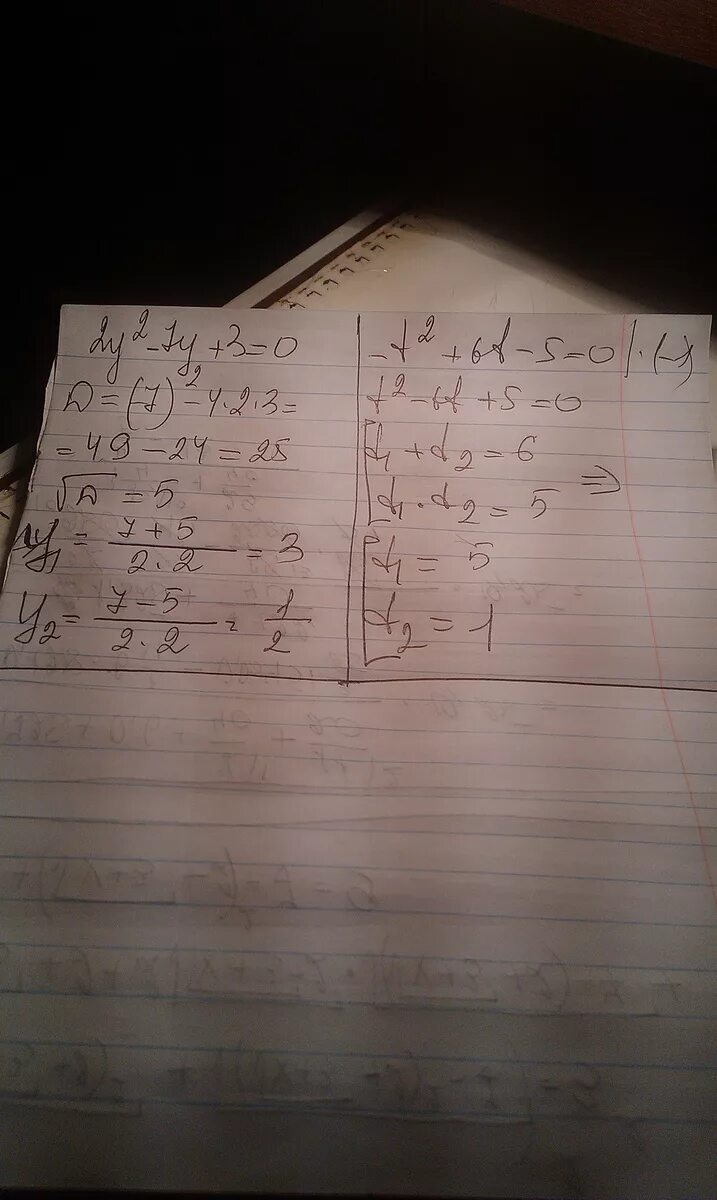 2y² - 7y + 3 = 0
D = (7)² - 4·2·3 =
= 49 - 24 = 25
√D = 5
y₁ = (7 + 5)/(2·2) = 3
y₂ = (7 - 5)/(2·2) = 1/2
-t² + 6t - 5 = 0 | ·(-1)
t² - 6t + 5 = 0
[ t₁ + t₂ = 6
t₁ · t₂ = 5 ⇒
[ t₁ = 5
t₂ = 1